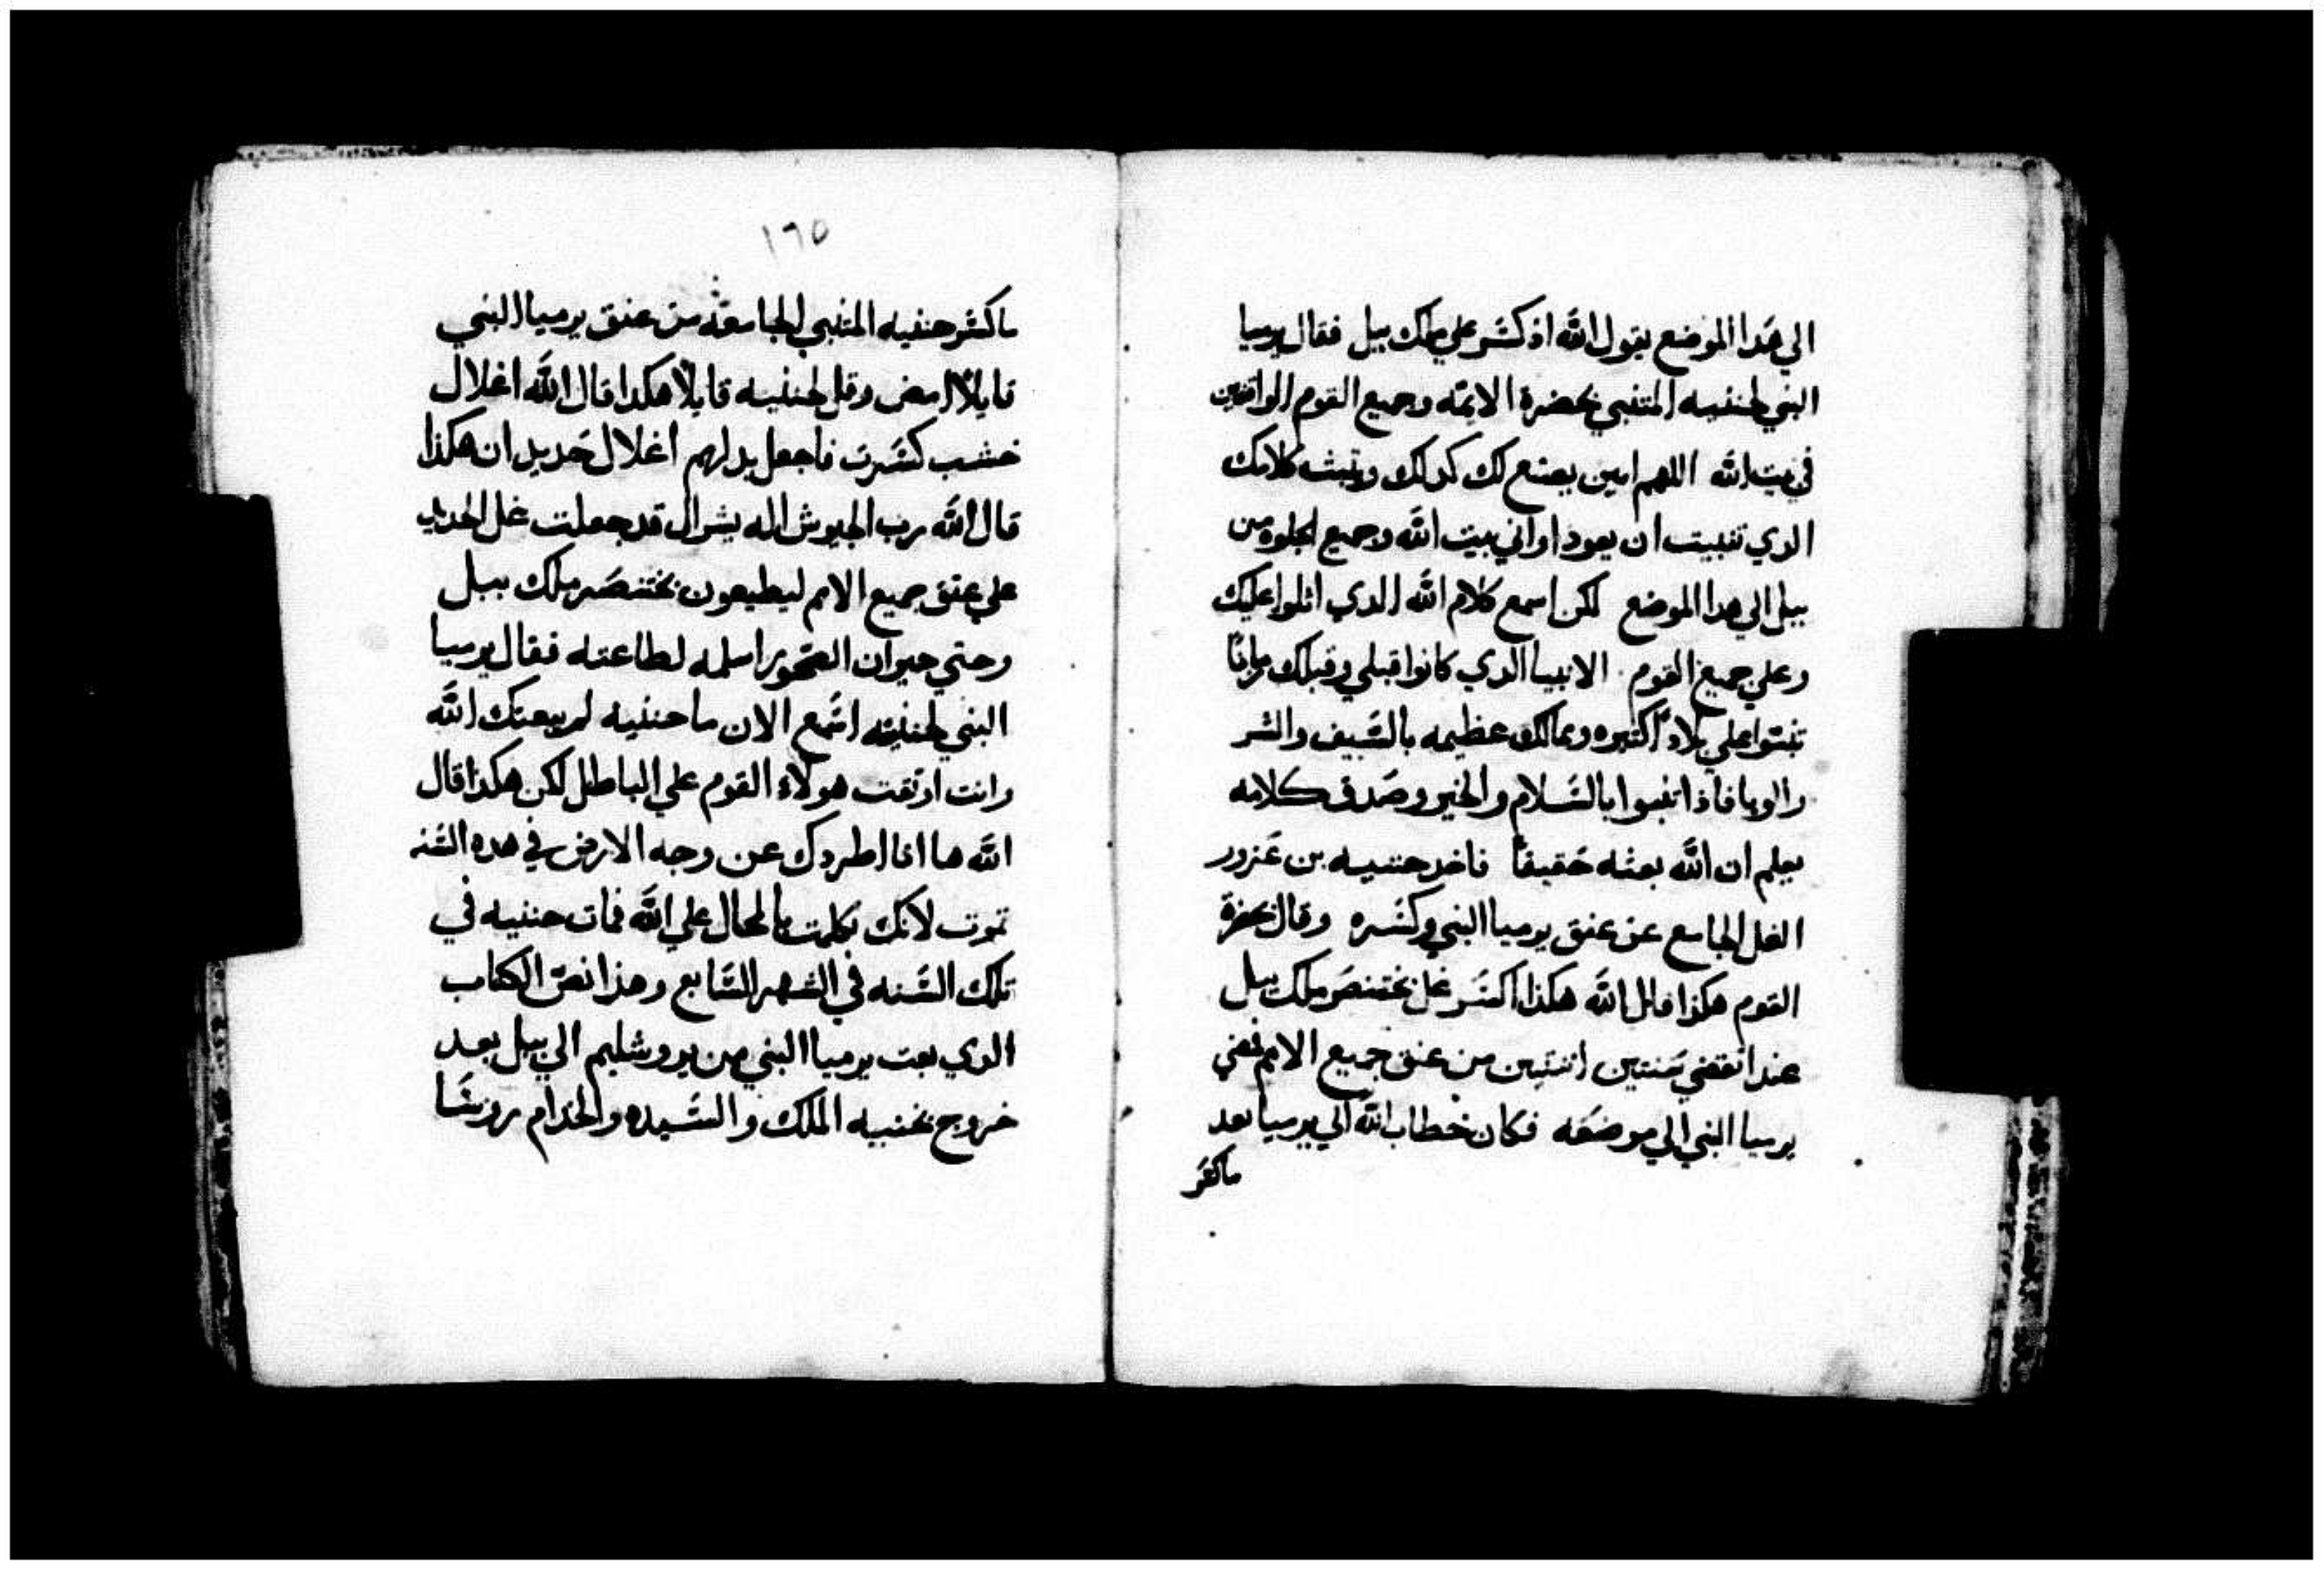 الي هدا الموضع يقول الله اذ كسر علي ملك ببل فقال يرميا
النبي لحننيه المتنبي بحضرة الايمه وجميع القوم الواقفين
في بيت الله اللهم امين يصنع لك كدلك ويثبت كلامك
الدي تنبيت ان يعود اواني بيت الله وجميع الجلوه من
ببل الي هدا الموضع لكن اسمع كلام الله الدي اتلوا عليك
وعلي جميع القوم الانبيا الدي كانوا قبلي وقبلك
علي بلاد اكتيره وممالك عظيمه بالسيف والشر
والوبا فاذا بالسلام والخير وصدق كلامه
يعلم ان الله بعثه حقيقاً فاخد حننيه بن عزور
الغل الجامع عن عنق يرميا النبي وكسره وقال بحضرة
القوم هكذا قال الله هكذا اكسر غل بختنصر ملك ببل
عند انقضي سنتين اثنتين من عنق جميع الامم فمضي
يرميا النبي الي موضعه فكان خطاب الله الي يرميا بعد
ماكسر
١٦٥
ماكسر حننيه المتنبي الجامعة من عنق يرميا النبي
قايلاً امض وقل لحننيه قايلاً هكدا قال الله اغلال
خشب كسرت فاجعل بدلهم اغلال حديد ان هكذا
قال الله رب الجيوش اله يشرال قد جعلت غل الحديد
علي عنق جميع الامم ليطيعون بختنصر ملك ببل
وحتي حيوان الصحور اسلمه لطاعته فقال يرميا
النبي لحننيه اسمع الان ما حننيه لم يبعتك الله
وانت اوتقت هولاء القوم علي الباطل لكن هكدا قال
الله ها انا اطردك عن وجه الارض في هده السنه
تموت لانك تكلمت بالمحال علي الله فمات حننيه في
تلك السنه في الشهر السابع وهذا نص الكتاب
الدي بعت يرميا النبي من يروشليم الي ببل بعد
خروج يخنيه الملك والسيده والخدام روسا